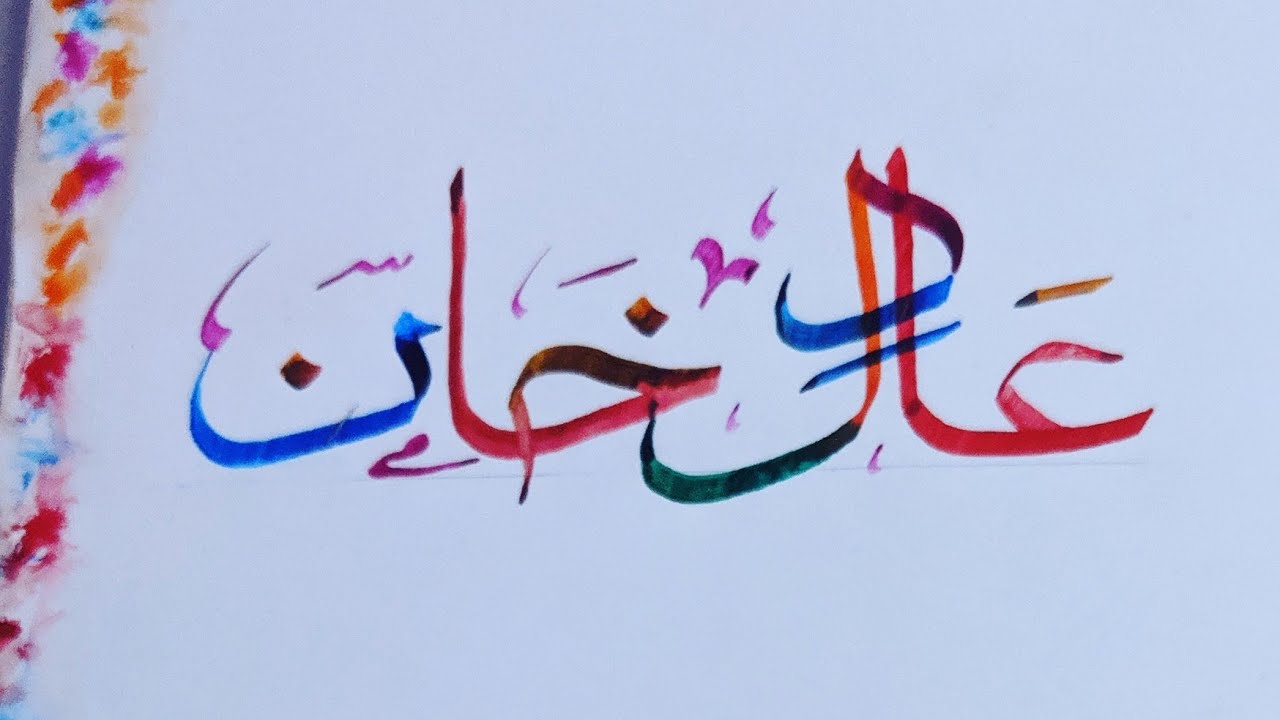 عَادِل خَان